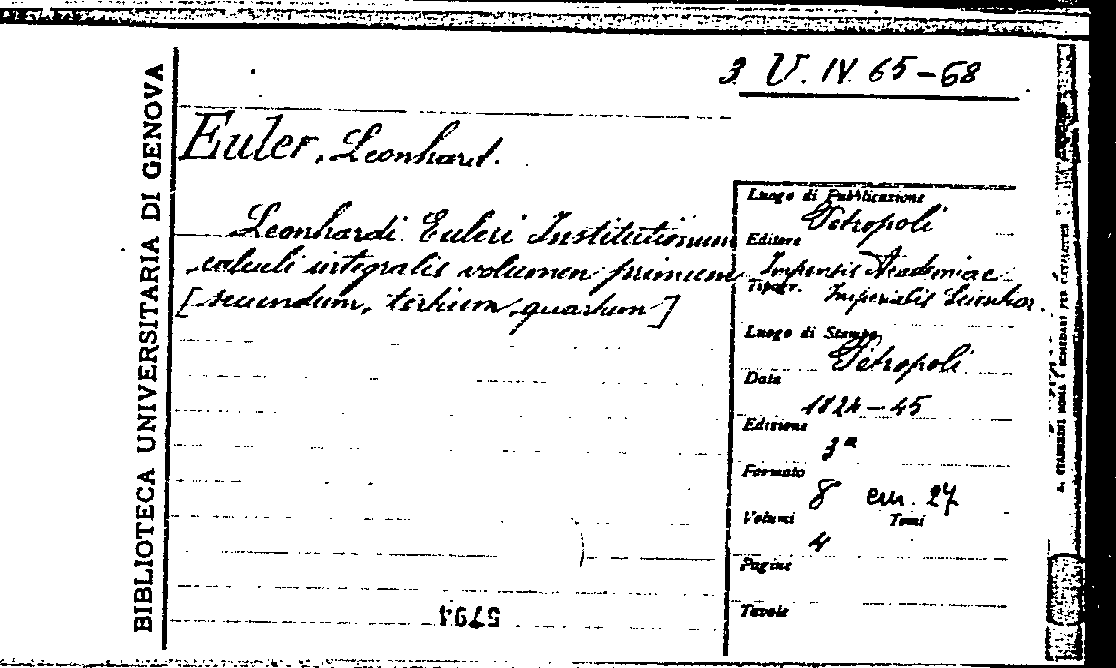 3 U. IV. 65-68
BIBLIOTECA UNIVERSITARIA DI GENOVA
Euler, Leonhard.
Leonhardi Euleri Institutionum
calculi integralis volumen primum
[secundum, tertium, quartum]
5794
Luogo di Pubblicazione
Petropoli
Editore
Impensis Academiae
Tipogr.
Imperialis Scienhar.
Luogo di Stampa
Petropoli
Data
1824-45
Edizione
3ª
Formato
8 cm. 27
Volumi Tomi
4
Pagine
Tavole